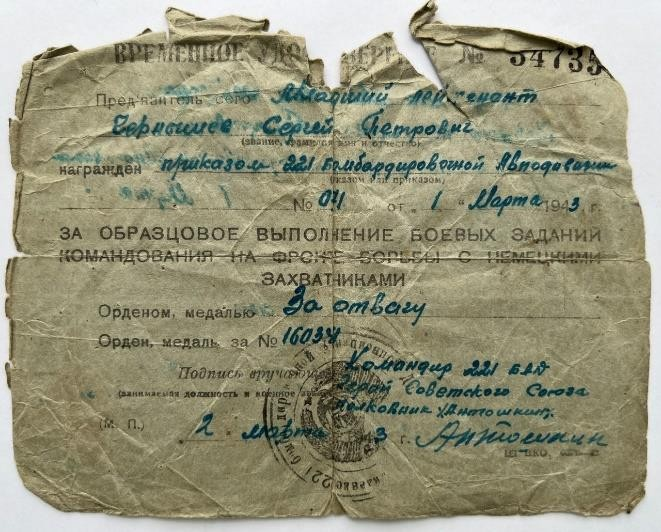 ВРЕМЕННОЕ № 54735
Пред'явитель сего Младший лейтенант
Чернышев Сергей Петрович
(звание, фамилия имя и отчество)
награжден приказом 221 Бомбардировочной Авиадивизии
(указом или приказом)
№ 04 от „ 1 " Марта 1943 г.
ЗА ОБРАЗЦОВОЕ ВЫПОЛНЕНИЕ БОЕВЫХ ЗАДАНИЙ
КОМАНДОВАНИЯ НА ФРОНТЕ БОРЬБЫ С НЕМЕЦКИМИ
ЗАХВАТЧИКАМИ
Орденом, медалью За отвагу
Орден, медаль за № 16034
Командир 221 БАД
Подпись вручающего
Герой Советского Союза
(занимаемая должность и военное
Полковник (Антошкин).
(М П.) „ 2 " марта 43 г. Антошкин